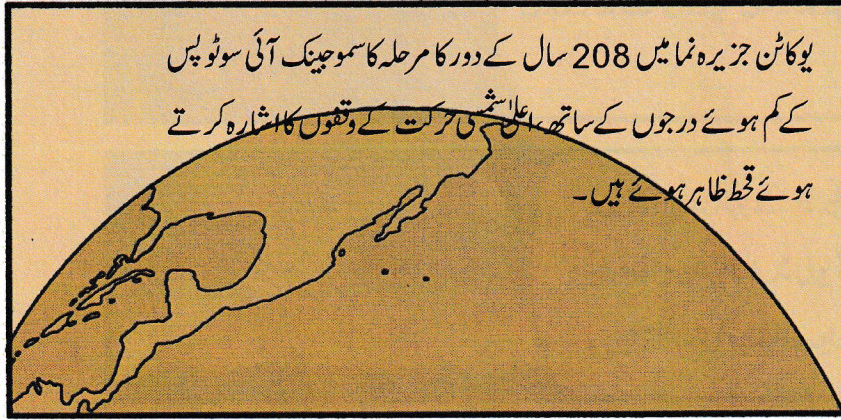 یوکاٹن جزیرہ نما میں 208 سال کے دور کا مرحلہ کاسموجینک آئی سوٹوپس
کے کم ہوئے درجوں کے ساتھ، اعلیٰ شمسی حرکت کے وقفوں کا اشارہ کرتے
ہوئے قحط ظاہر ہوئے ہیں۔